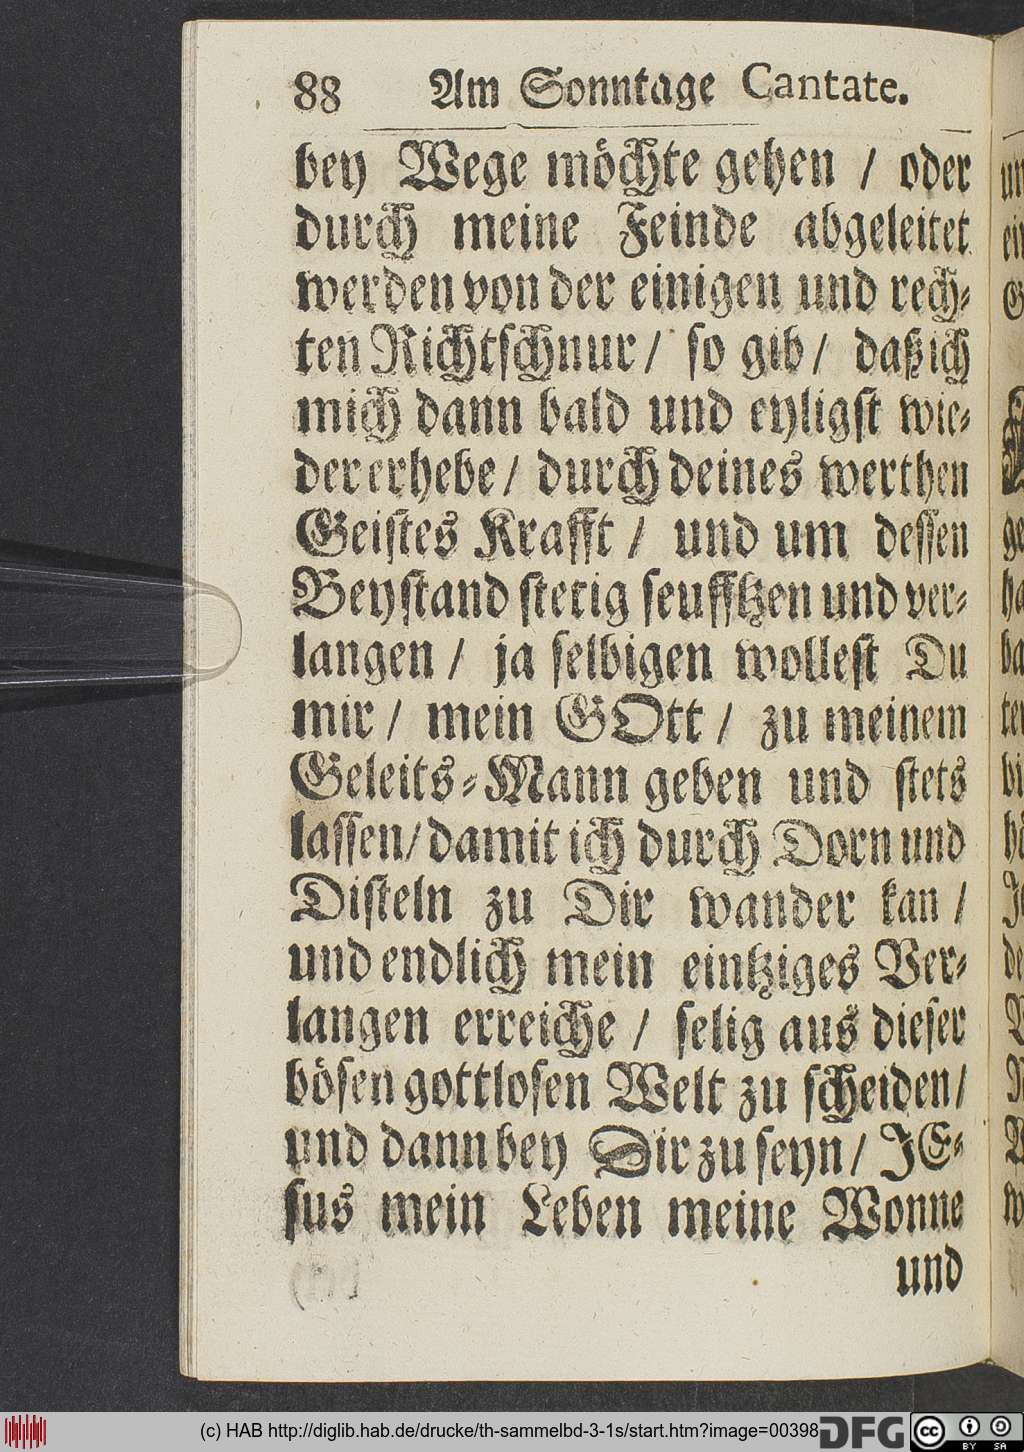 88 Am Sonntage Cantate.
bey Wege möchte gehen / oder
durch meine Feinde abgeleitet
werden von der einigen und rech⸗
ten Richtschnur / so gib / daß ich
mich dann bald und eyligst wie⸗
der erhebe / durch deines werthen
Geistes Krafft / und um dessen
Beystand stetig seufftzen und ver⸗
langen / ja selbigen wollest Du
mir / mein GOtt / zu meinem
Geleits⸗Mann geben und stets
lassen / damit ich durch Dorn und
Disteln zu Dir wander kan /
und endlich mein eintziges Ver⸗
langen erreiche / selig aus dieser
bösen gottlosen Welt zu scheiden /
und dann bey Dir zu seyn / JE⸗
sus mein Leben meine Wonne
und
(c) HAB http://diglib.hab.de/drucke/th-sammelbd-3-1s/start.htm?image=00398
DFG
cc BY SA